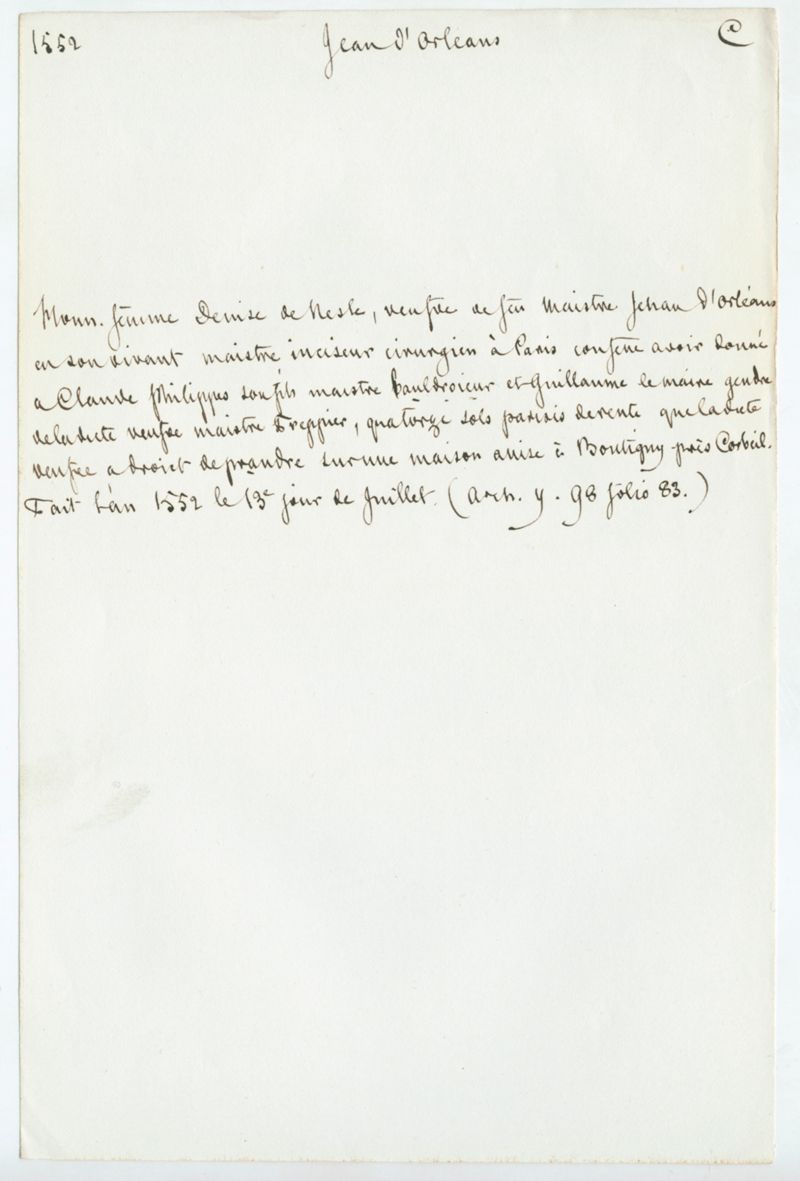 1552 Jean d'Orleans C
Honn. femme Denise de Nesle, veufve de feu Maistre Jehan d'Orléans
en son vivant maistre inciseur cirurgien à Paris confesse avoir donné
a Claude Philippes son fils maistre bauldroieur et Guillaume le maire gendre
de ladicte veufve maistre Freppier, quatorze sols parisis de rente que ladicte
veufve a droict de prandre sur une maison assise à Boutigny près Corbeil.
Fait l'an 1552 le 13e jour de Juillet. (Arch. y. 98 folio 83.)